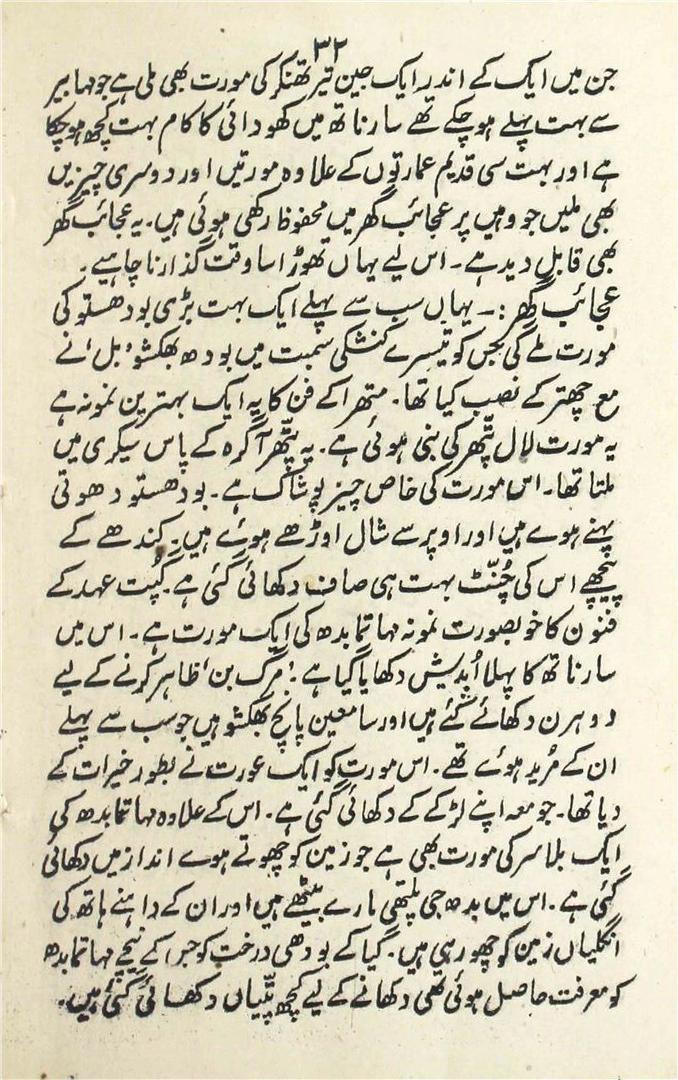 ۳۲
جن میں ایک کے اندر ایک جین تیر تھنکر کی مورت بھی ملی ہے جو مہابیر
سے بہت پہلے ہو چکے تھے سارناتھ میں کھودائی کا کام بہت کچھ ہو چکا
ہے اور بہت سی قدیم عمارتوں کے علاوہ مورتیں اور دوسری چیزیں
بھی ملیں جو وہیں پر عجائب گھر میں محفوظ رکھی ہوئی ہیں۔ یہ عجائب گھر
بھی قابل دید ہے۔ اس لیے یہاں تھوڑا سا وقت گذارنا چاہیے۔
عجائب گھر :۔ یہاں سب سے پہلے ایک بہت بڑی بودھستو کی
مورت ملے گی جس کو تیسرے کنشکی سمبت میں بودھ بھکشو 'بل' نے
مع چھتر کے نصب کیا تھا۔ متھرا کے فن کا یہ ایک بہترین نمونہ ہے
یہ مورت لال پتّھر کی بنی ہوئی ہے۔ یہ پتّھر آگرہ کے پاس سیکری میں
ملتا تھا۔ اس مورت کی خاص چیز پوشاک ہے۔ بودھستو دھوتی
پہنے ہوے ہیں اور اوپر سے شال اوڑھے ہوئے ہیں۔ کندھے کے
پیچھے اس کی چُنّٹ بہت ہی صاف دکھائی گئی ہے۔ گپت عہد کے
فنون کا خوبصورت نمونہ مہاتما بدھ کی ایک مورت ہے۔ اس میں
سارناتھ کا پہلا اُپدیش دکھایا گیا ہے! 'مرگ بن' ظاہر کرنے کے لیے
دو ہرن دکھائے گئے ہیں اور سامعین پانچ بھکشو ہیں جو سب سے پہلے
ان کے مُرید ہوئے تھے۔ اس مورت کو ایک عورت نے بطور خیرات کے
دیا تھا۔ جو معہ اپنے لڑکے کے دکھائی گئی ہے۔ اس کے علاوہ مہاتما بدھ کی
ایک بلا سر کی مورت بھی ہے جو زمین کو چھوتے ہوے انداز میں دکھائی
گئی ہے۔ اس میں بدھ جی پلتھی مارے بیٹھے ہیں اور ان کے داہنے ہاتھ کی
انگلیاں زمین کو چھو رہی ہیں۔ گیا کے بودھی درخت کو جس کے نیچے مہاتما بدھ
کو معرفت حاصل ہوئی تھی دکھانے کے لیے کچھ پتّیاں دکھائی گئی ہیں۔